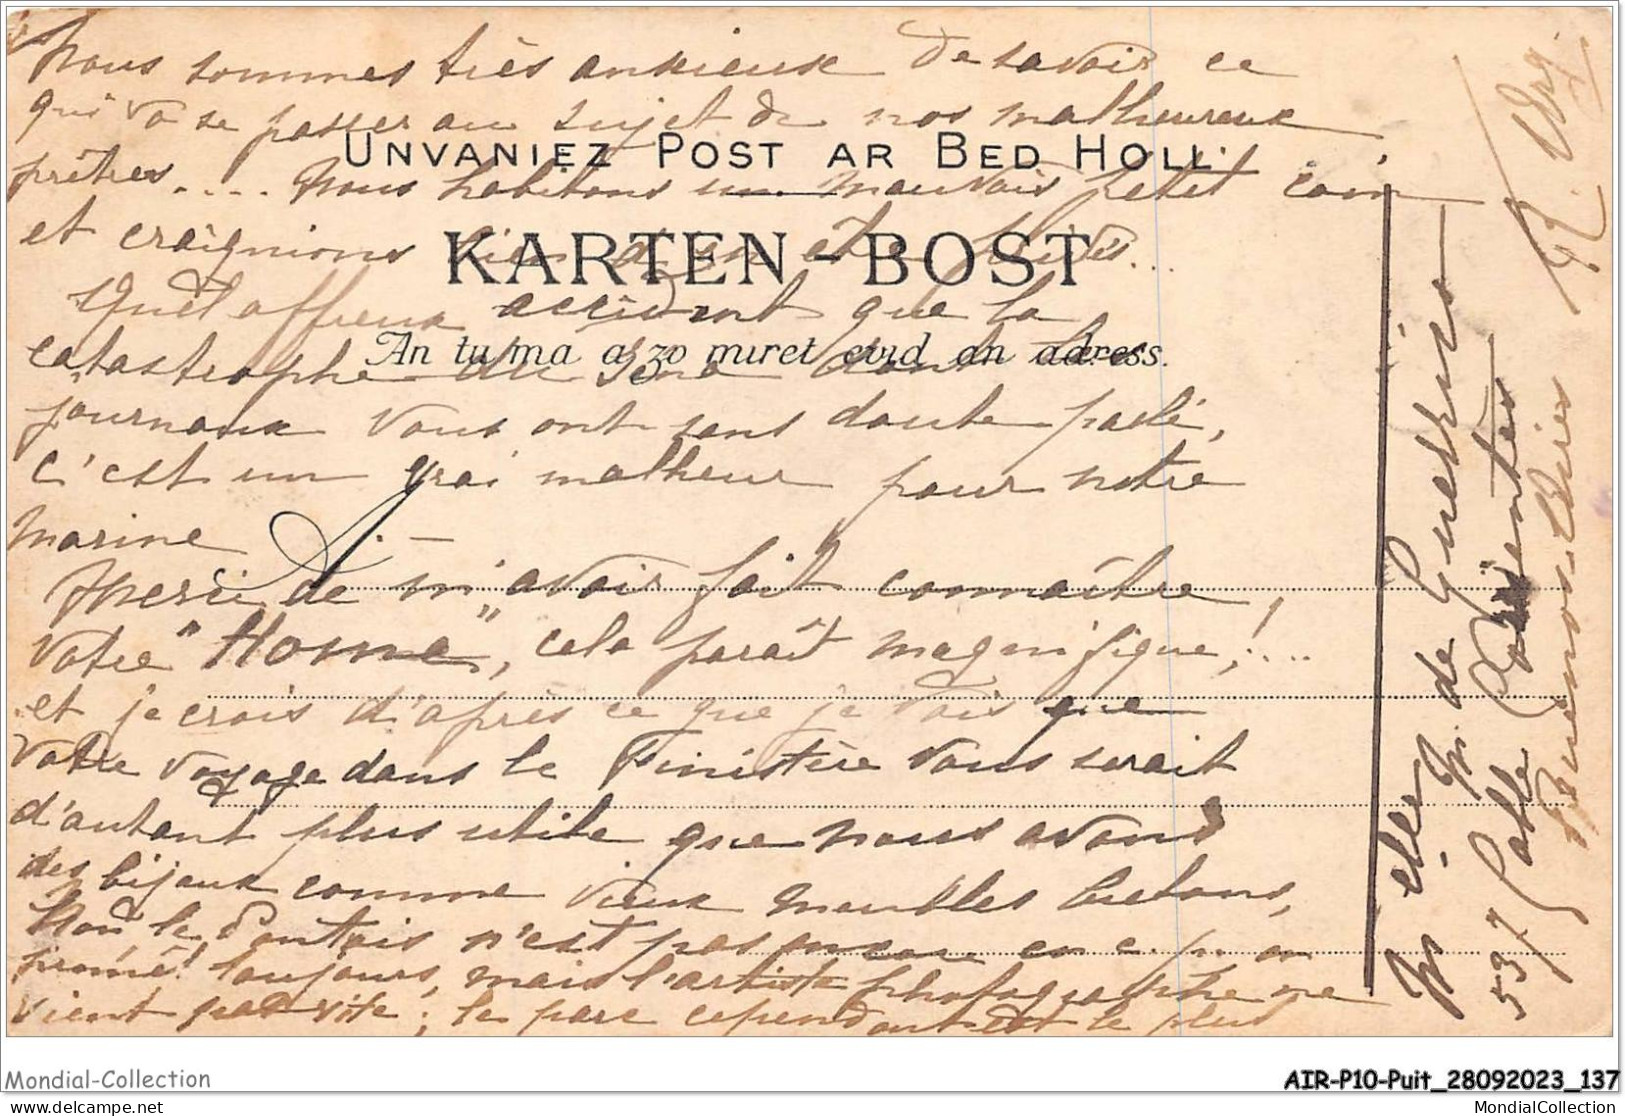 Nous sommes très anxieux de savoir ce
qui va se passer au sujet de nos malheureux
UNVANIEZ POST AR BED HOLL.
prêtres.... Nous habitons un mauvais petit coin
et craignions bien d'en être
KARTEN-BOST
Quel affreux accident que la
An tu ma a zo miret evid an adress.
catastrophe du Iéna dont les
journaux vous ont sans doute parlé,
c'est un vrai malheur pour notre
marine
Merci de m'avoir fait connaître
votre "Home", cela parait magnifique!....
et je crois d'après ce que je vois que
votre voyage dans le Finistère vous serait
d'autant plus utile que nous avons
des bijoux comme vieux meubles bretons,
Non le n'est pas encore en c. p. on
promet toujours, mais l'artiste photographe ne
vient pas vite; le parc cependant est le plus
M elle M. de Guernisac
537 Sable